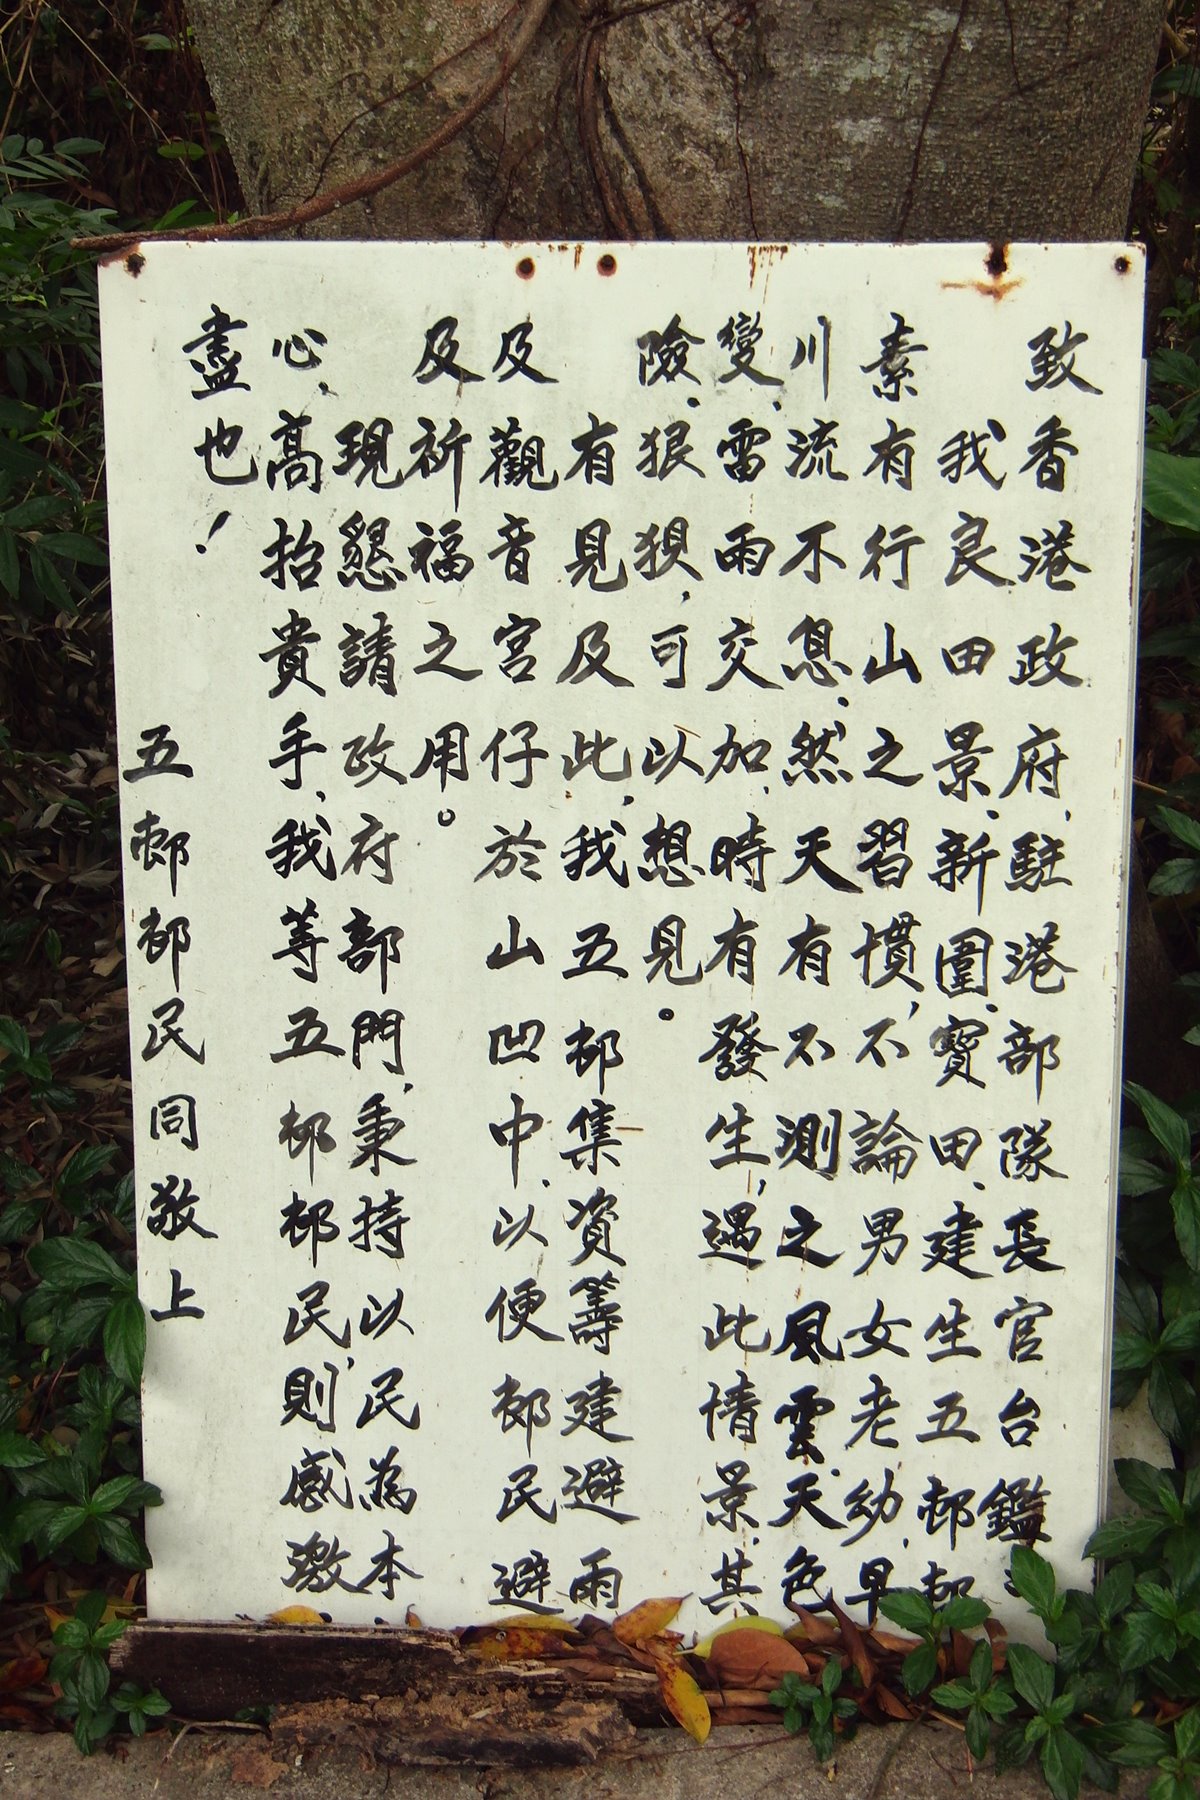 致香港政府、駐港部隊長官台鑑
我良田景、新圍、寶田、建生五邨邨
素有行山之習慣，不論男女老幼、早
川流不息、然天有不測之風雲、天色
變、雷雨交加、時有發生，遇此情景、其
險、狼狽，可以想見。
有見及此，我五邨集資籌建避雨
及觀音宮仔於山凹中、以便邨民避
及祈福之用。
現懇請政府部門，秉持以民為本
心、高抬貴手、我等五邨邨民，則感激
盡也！
五邨邨民同敬上